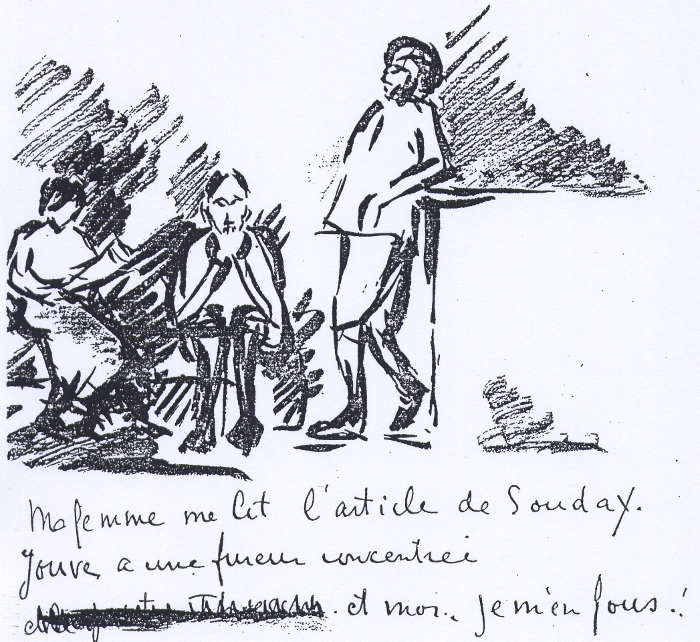 Ma femme me lit l'article de Souday.
Jouve a une fureur concentrée
et moi.. je m'en fous..!